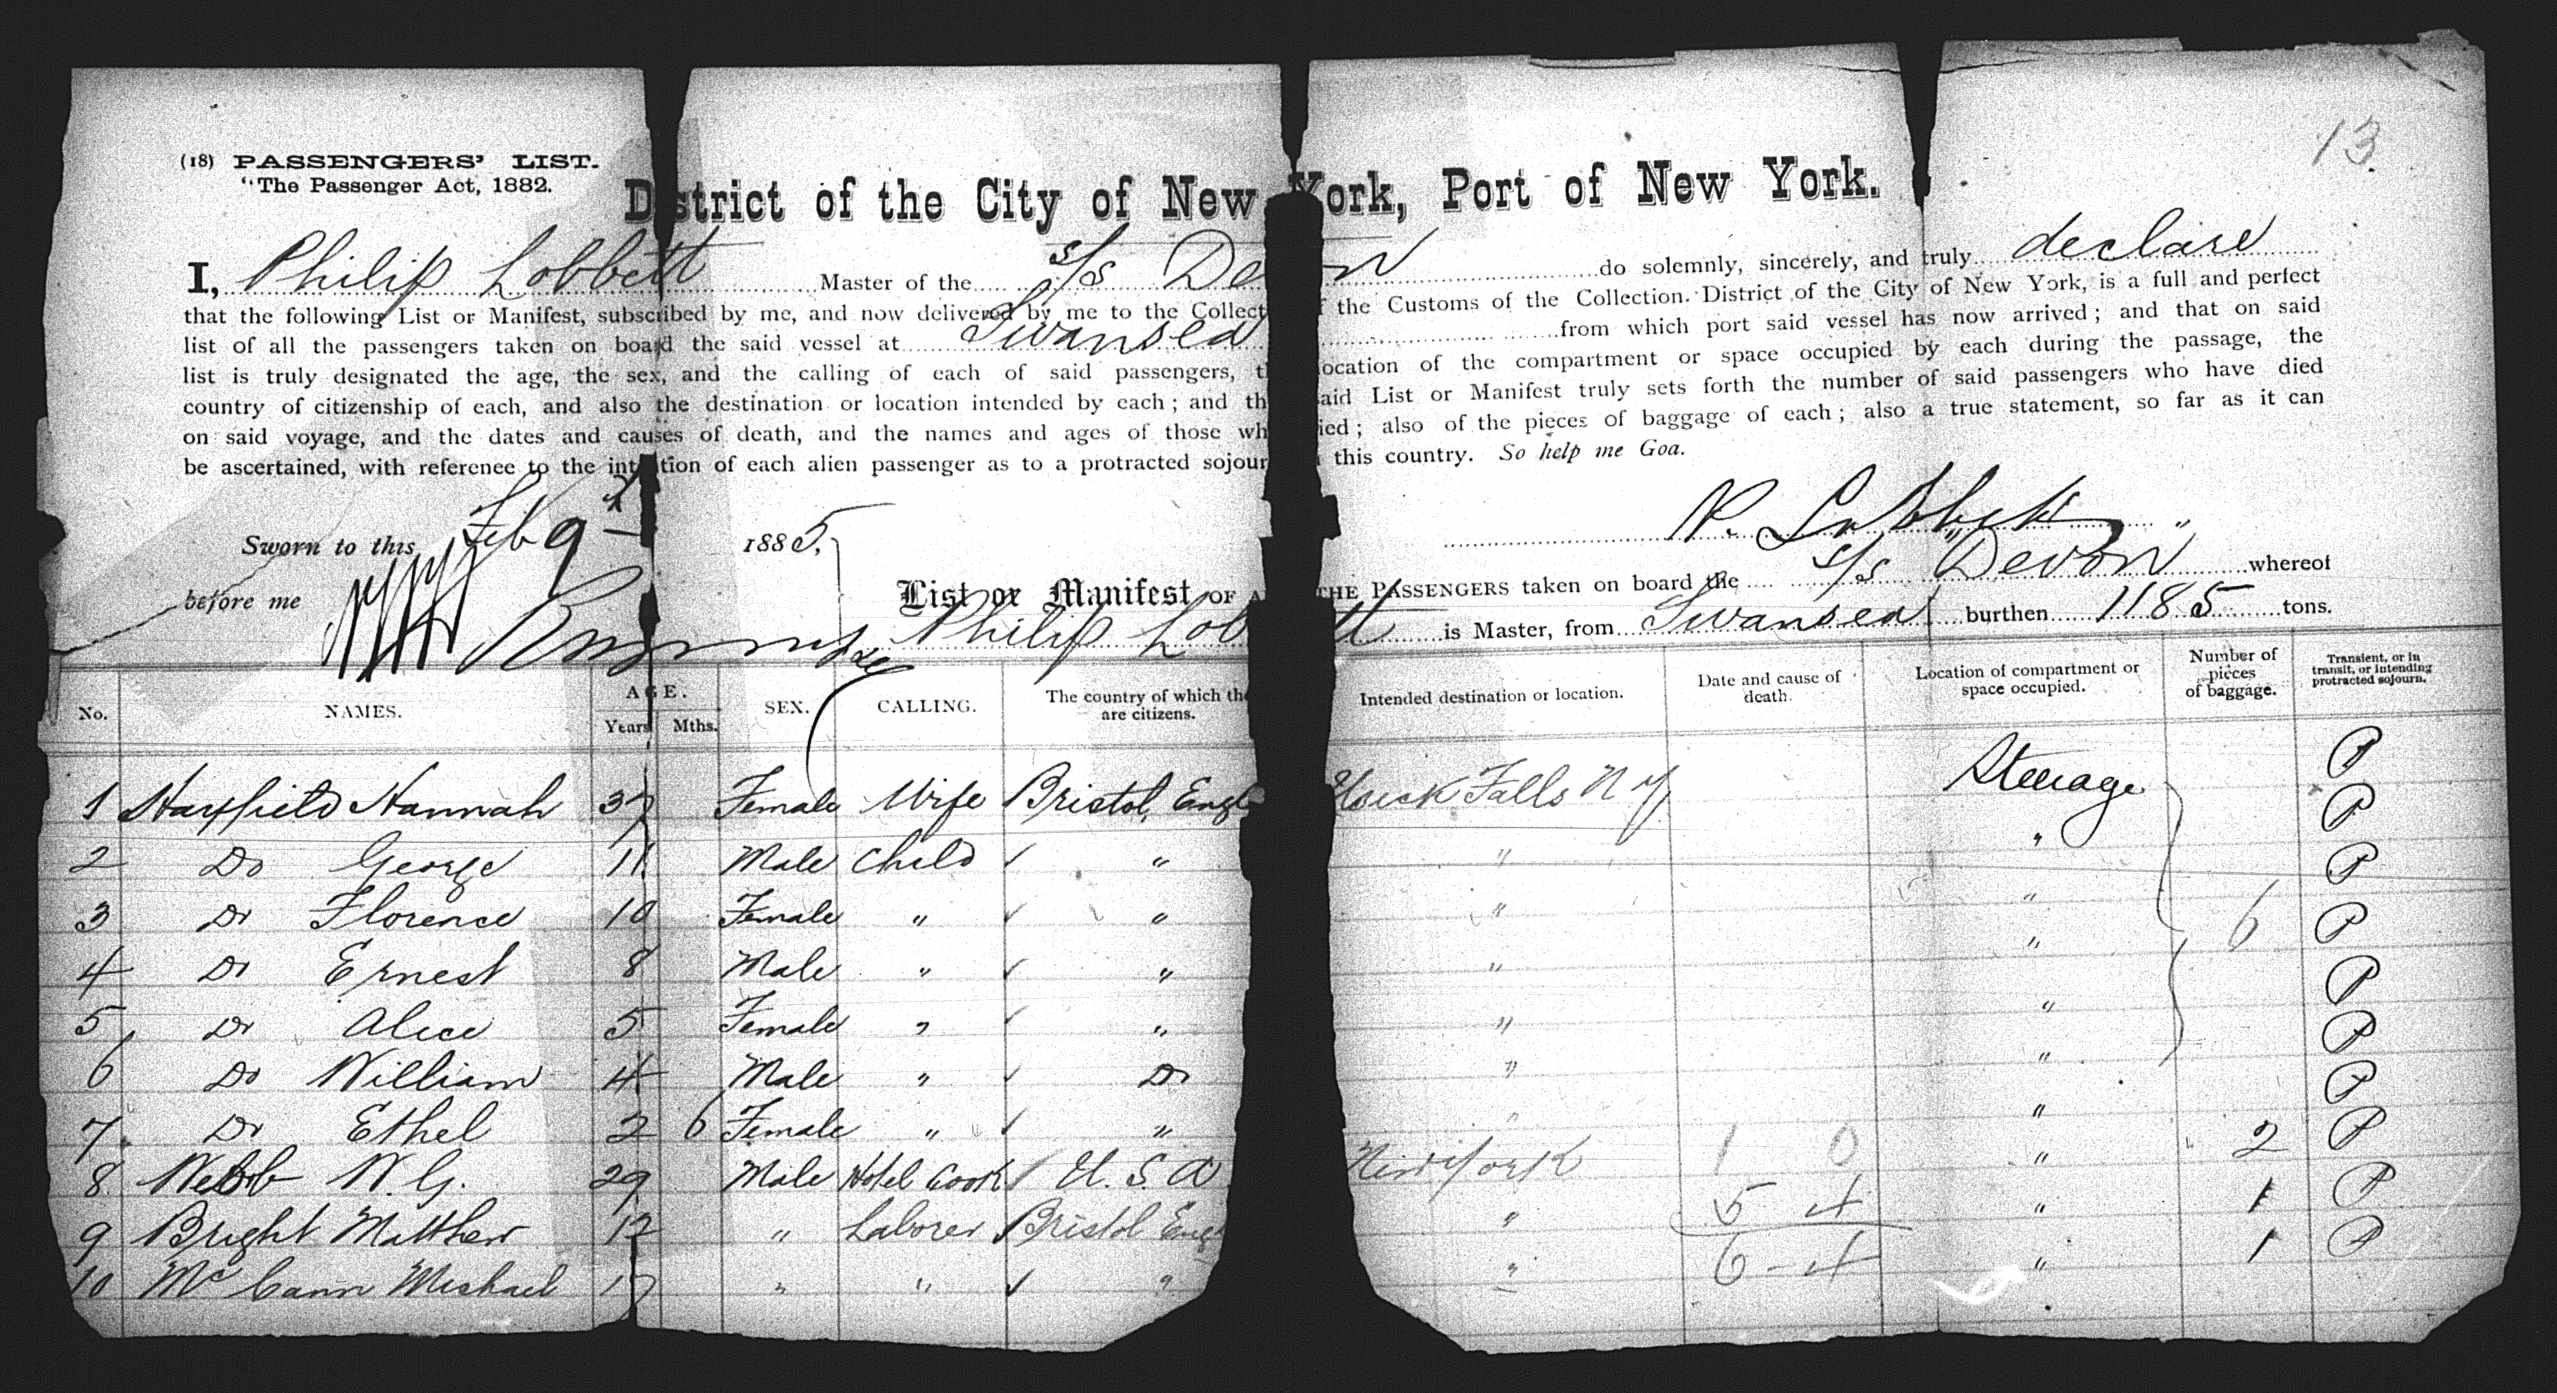 13
(18) PASSENGERS' LIST.
"The Passenger Act, 1882.
District of the City of New York, Port of New York.
I, Philip Lobbett Master of the s/s Devon do solemnly, sincerely, and truly declare
that the following List or Manifest, subscribed by me, and now delivered by me to the Collect f the Customs of the Collection District of the City of New York, is a full and perfect
list of all the passengers taken on board the said vessel at Swansea from which port said vessel has now arrived; and that on said
list is truly designated the age, the sex, and the calling of each of said passengers, t ocation of the compartment or space occupied by each during the passage, the
country of citizenship of each, and also the destination or location intended by each; and th aid List or Manifest truly sets forth the number of said passengers who have died
on said voyage, and the dates and causes of death, and the names and ages of those wh ied; also of the pieces of baggage of each; also a true statement, so far as it can
be ascertained, with reference to the int tion of each alien passenger as to a protracted sojour this country. So help me God.
P. Lobbett "
Sworn to this Feb 9 1885.
before me
List or Manifest OF A THE PASSENGERS taken on board the s/s Devon whereof
Philip Lobbett is Master, from Swansea burthen 1185 tons.
No. NAMES. AGE. Years Mths. SEX. CALLING. The country of which the are citizens. Intended destination or location. Date and cause of death. Location of compartment or space occupied. Number of pieces of baggage. Transient, or in transit, or intending protracted sojourn.
1 Hayfield Hannah 37 Female Wife Bristol, Engl Falls N Y Steerage P
2 Do George 11 Male Child ✓ " " " P
3 Do Florence 10 Female " ✓ " " " P
4 Do Ernest 8 Male " ✓ " " " 6 P
5 Do Alice 5 Female " ✓ " " " P
6 Do William 4 Male " ✓ Do " " P
7 Do Ethel 2 6 Female " ✓ " " " P
8 Webb W. G. 29 Male Hotel Cook U. S. A New York 1 0 " 2 P
9 Bright Matthew 12 " Laborer ✓ Bristol Eng " 5 4 " 1 P
10 McCann Michael 17 " " ✓ " " 6 - 4 " 1 P